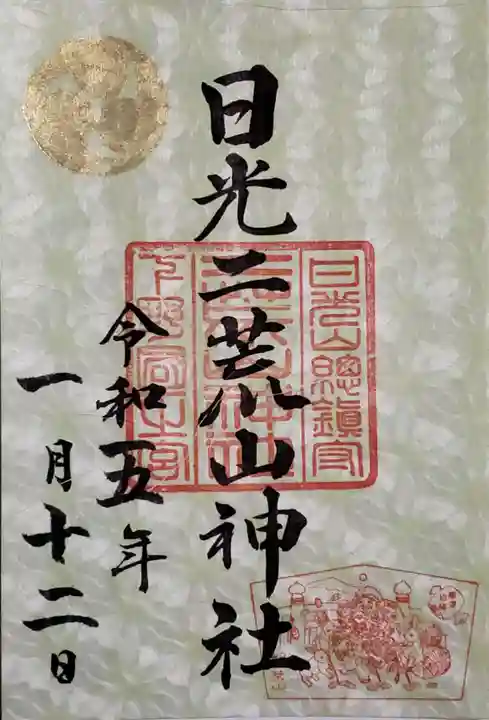 日光二荒山神社
令和五年
一月十二日
日光山總鎮守
二荒山神社
下野國一宮